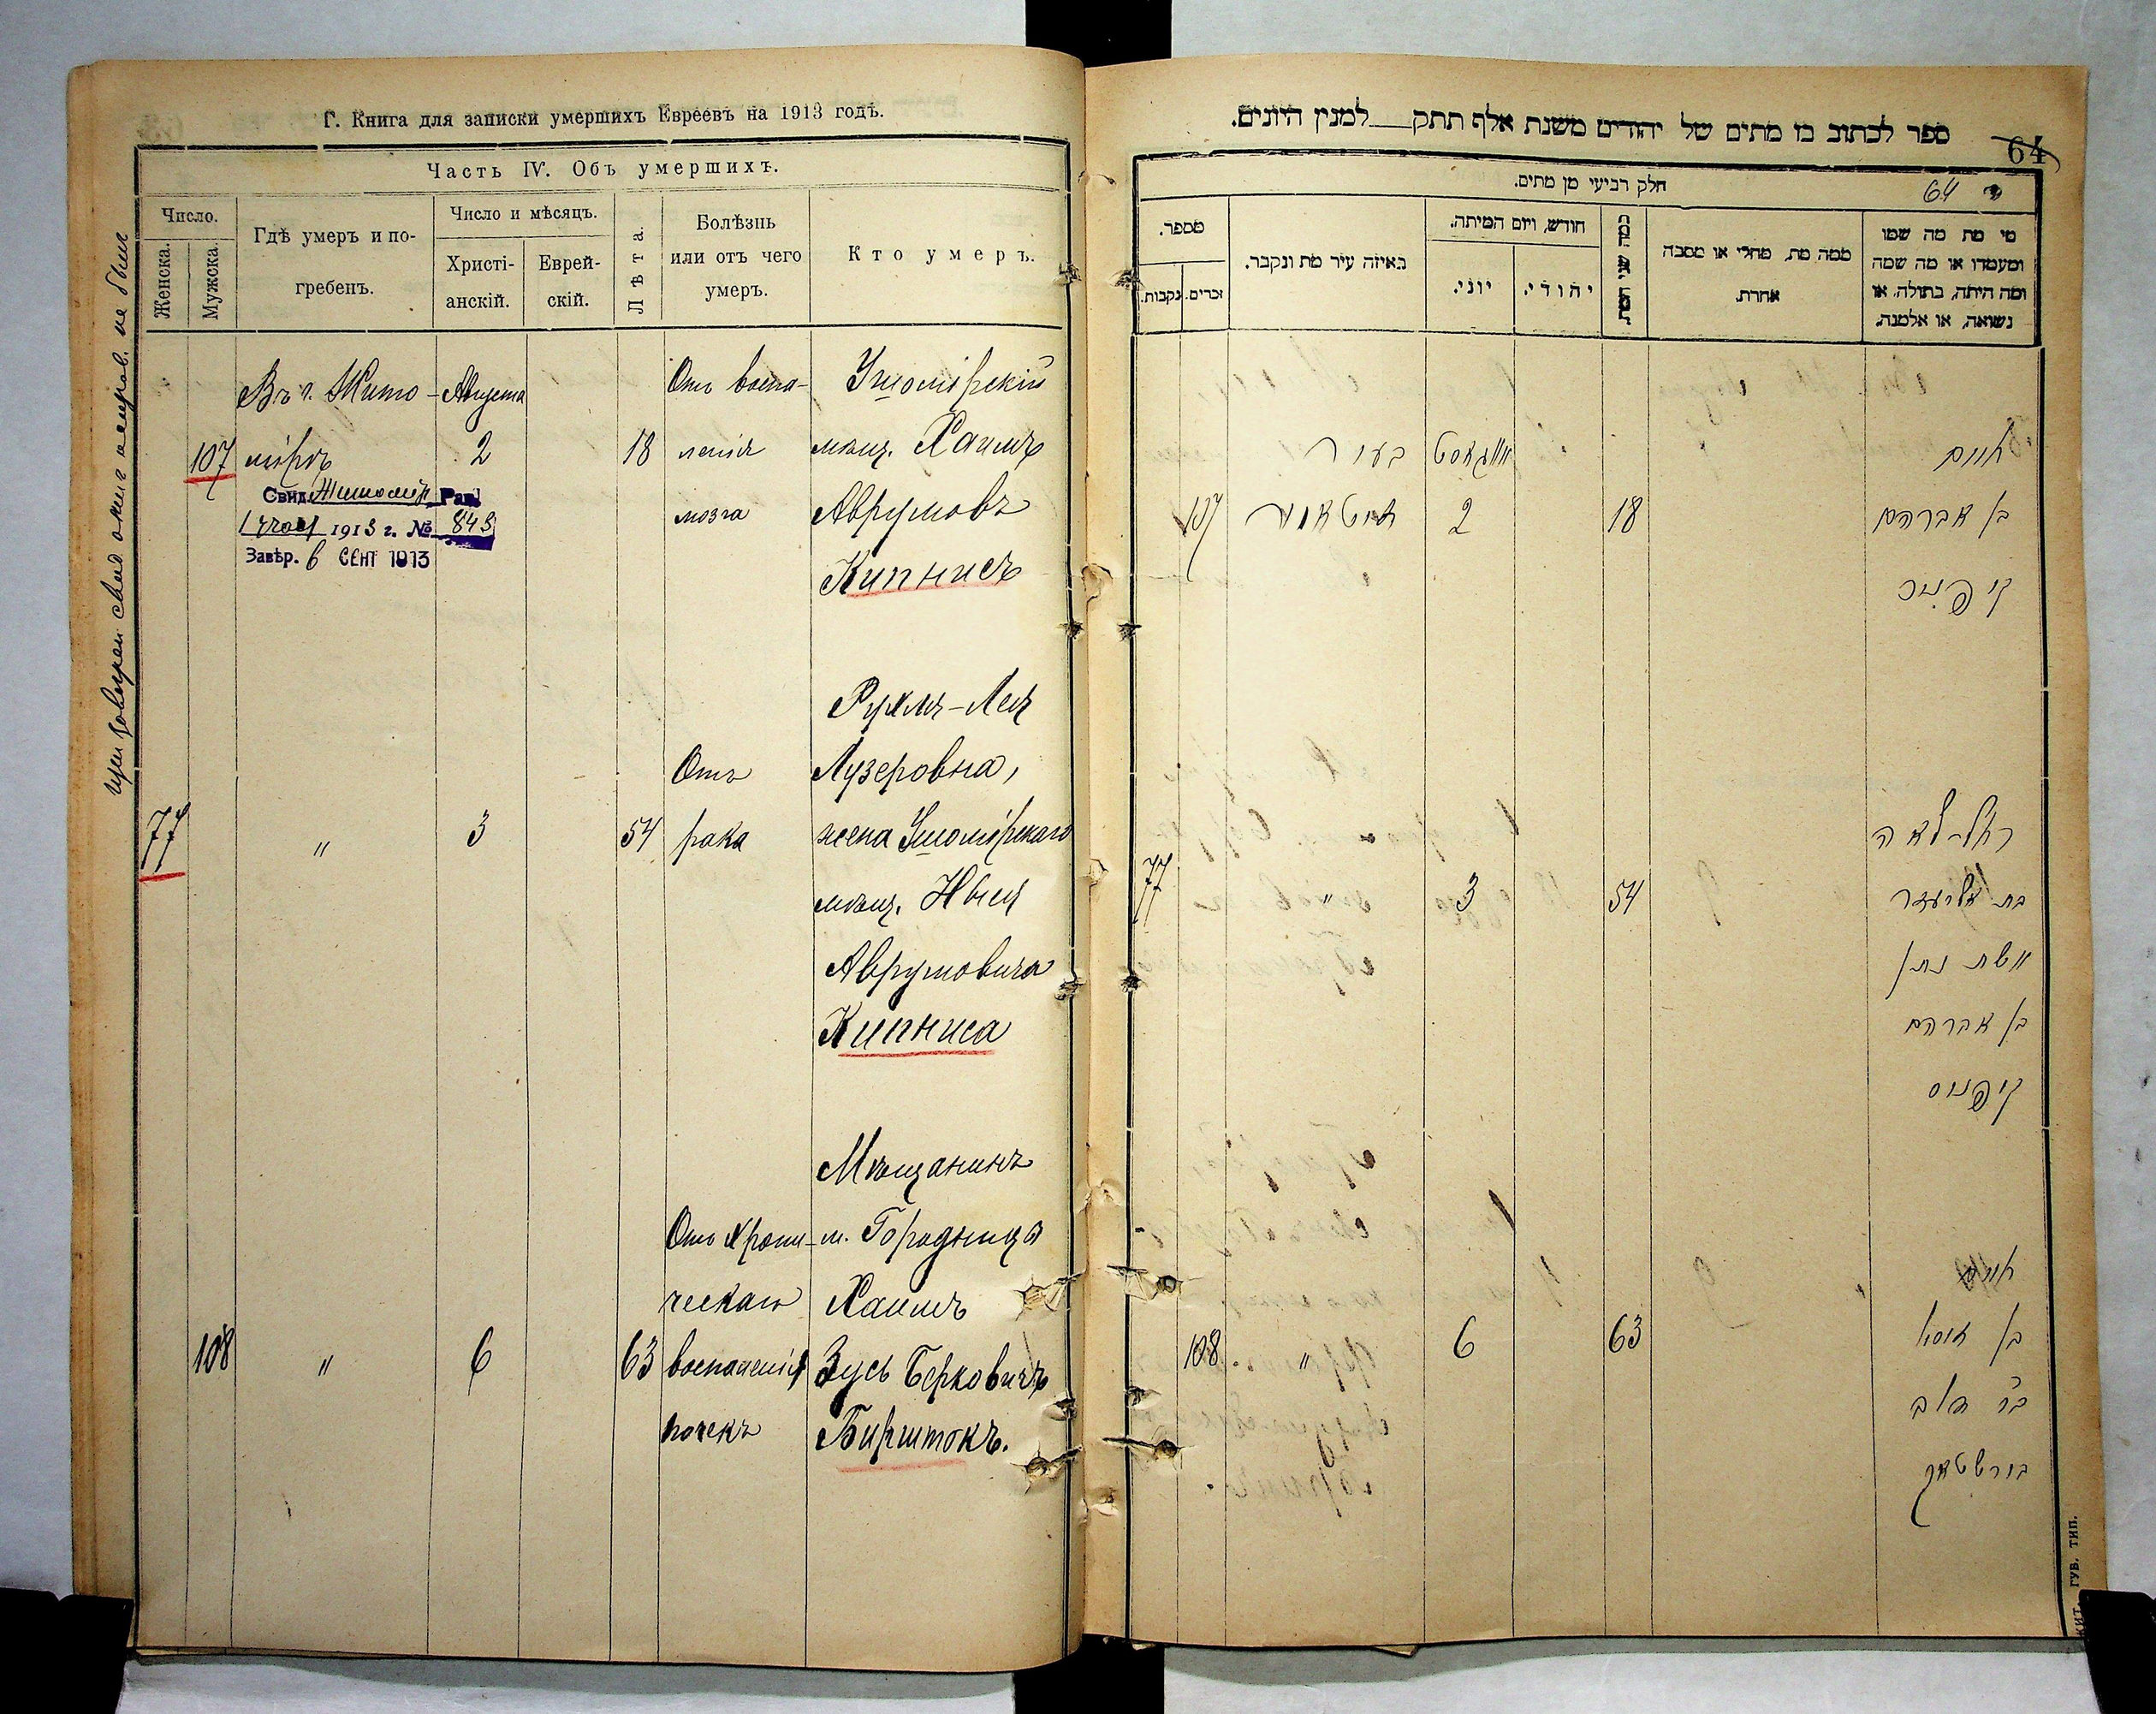 Г. Книга для записки умершихъ Евреевъ на 1913 годъ.
Часть IV. Объ умершихъ.
Число.
Женска.
Мужска.
Гдѣ умеръ и по-
гребенъ.
Число и мѣсяцъ.
Христі-
анскій.
Еврей-
скій.
Лѣта.
Болѣзнь
или отъ чего
умеръ.
Кто умеръ.
Въ г. Жито- Августа Отъ воспа- Ушомірскій
107 мірѣ 2 18 ленія мѣщ. Хаимъ
Свид. Житомір. Рав.
1913 г. № 843
мозга Аврумовъ
Завѣр. 6 СЕНТ 1913
Кипнисъ
Рухля-Лея
Отъ Лузеровна,
77 " 3 54 рака жена Ушомірскаго
мѣщ. Ныся
Аврумовича
Кипниса
Мѣщанинъ
Отъ хрони- м. Городница
ческаго Хаимъ
108 " 6 63 воспаленія Зусь Берковичъ
почекъ Бирштокъ.
ספר לכתוב בו מתים של יהודים משנת אלף תתק למנין היונים.
64
חלק רביעי מן מתים.
64
מספר.
נקבות.
זכרים.
באיזה עיר מת ונקבר.
חודש, ויום המיתה.
יוני.
יהודי.
כמה שני המת.
ממה מת, מחלי או מסבה
אחרת.
מי מת מה שמו
ומעמדו או מה שמה
ומה היתה, בתולה, או
נשואה, או אלמנה.
חיים
בעיר אווגוסט
107 זיטאמיר 2 18 בן אברהם
קיפניס
רחל-לאה
77 " 3 54 בת אליעזר
אשת נתן
בן אברהם
קיפניס
חיים
108 " 6 63
בירשטאק
ЖИТ. ГУБ. ТИП.